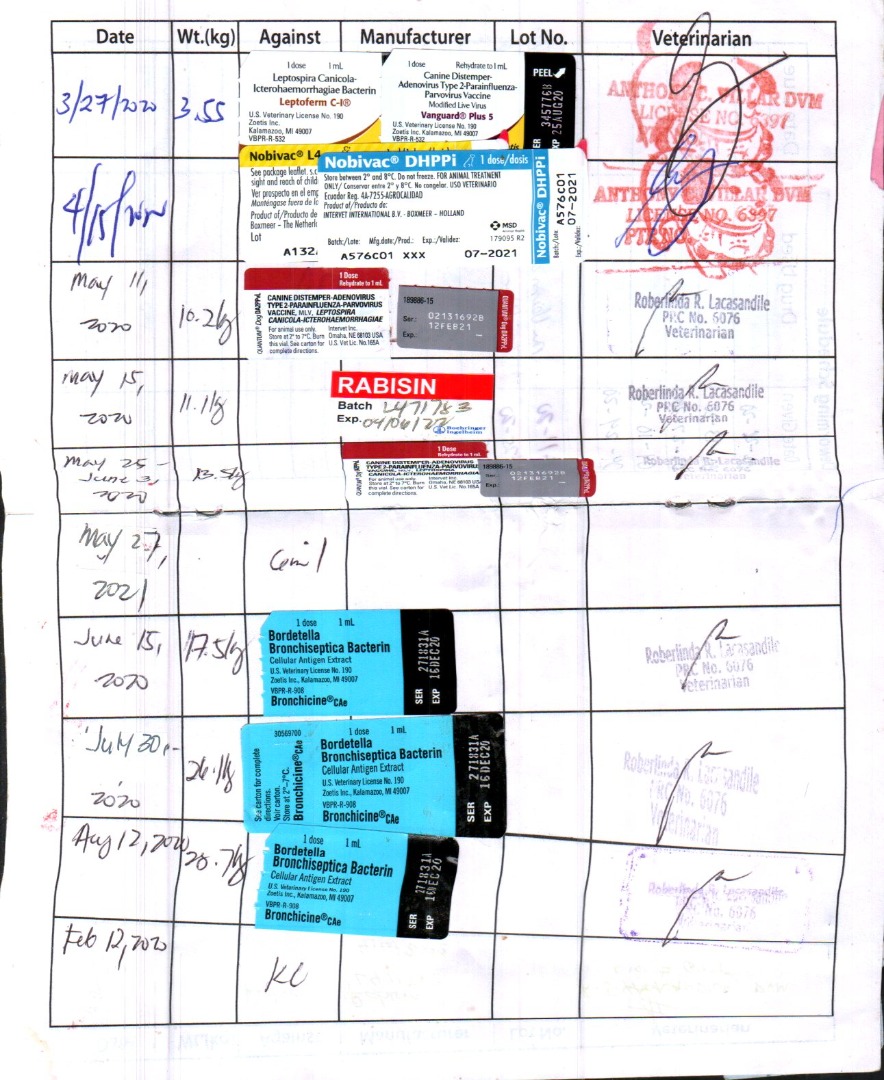 Date Wt.(kg) Against Manufacturer Lot No. Veterinarian
3/27/2020 3.55
1 dose 1 mL
Leptospira Canicola-
Icterohaemorrhagiae Bacterin
Leptoferm C-I®
U.S. Veterinary License No. 190
Zoetis Inc.
Kalamazoo, MI 49007
VBPR-R-532
1 dose Rehydrate to 1 mL
Canine Distemper-
Adenovirus Type 2-Parainfluenza-
Parvovirus Vaccine
Modified Live Virus
Vanguard® Plus 5
U.S. Veterinary License No. 190
Zoetis Inc.
Kalamazoo, MI 49007
VBPR-R-532
PEEL
345776B
25AUG20
ANTHO C. VILLAR DVM
LICENSE NO. 6397
4/15/2020
Nobivac® L4
See package leaflet.
sight and reach of child
Ver prospecto en el emp
Manténgase fuera de la
Product of/Producto de
Boxmeer – The Netherl
Lot
A132
Nobivac® DHPPi 1 dose/dosis
Store between 2° and 8°C. Do not freeze. FOR ANIMAL TREATMENT
ONLY/ Conservar entre 2° y 8°C. No congelar. USO VETERINARIO
Ecuador Reg. 4A-7255-AGROCALIDAD
Product of/Producto de:
INTERVET INTERNATIONAL B.V. - BOXMEER – HOLLAND
MSD
179095 R2
Batch./Lote: Mfg.date/Prod.: Exp./Validez:
A576C01 XXX 07-2021
Nobivac® DHPPi
Batch./Lote: A576C01
Exp./Validez: 07-2021
ANTHO VILLAR DVM
LICENSE NO. 6397
PTR NO.
May 11,
2020 10.2kg
1 Dose
Rehydrate to 1 mL
CANINE DISTEMPER-ADENOVIRUS
TYPE 2-PARAINFLUENZA-PARVOVIRUS
VACCINE, MLV, LEPTOSPIRA
CANICOLA-ICTEROHAEMORRHAGIAE
For animal use only. Intervet Inc.
Store at 2° to 7°C. Burn Omaha, NE 68103 USA
this vial. See carton for U.S. Vet Lic. No.165A
complete directions.
QUANTUM® Dog DA2PPvL
189886-15
Ser.: 02131692B
Exp.: 12FEB21
Roberlinda R. Lacasandile
PRC No. 6076
Veterinarian
May 15,
2020 11.1kg
RABISIN
Batch L471783
Exp.
Boehringer
Ingelheim
Roberlinda R. Lacasandile
PRC No. 6076
Veterinarian
May 25 -
June 3,
2020 13.5kg
1 Dose
Rehydrate to 1 mL
CANINE DISTEMPER-ADENOVIRUS
TYPE 2-PARAINFLUENZA-PARVOVIRUS
CANICOLA-ICTEROHAEMORRHAGIAE
For animal use only. Intervet Inc.
Store at 2° to 7°C. Burn Omaha, NE 68103 USA
this vial. See carton for U.S. Vet Lic. No.165A
complete directions.
189886-15
02131692B
Exp.: 12FEB21
Roberlinda R. Lacasandile
Veterinarian
May 27,
2021
June 15,
2020 17.5kg
1 dose 1 mL
Bordetella
Bronchiseptica Bacterin
Cellular Antigen Extract
U.S. Veterinary License No. 190
Zoetis Inc., Kalamazoo, MI 49007
VBPR-R-908
Bronchicine®CAe
SER 271831A
EXP 16DEC20
Roberlinda R. Lacasandile
PRC No. 6076
Veterinarian
July 30,
2020 26.1kg
30569700
See carton for complete
directions.
Voir carton.
Store at 2°-7°C.
Bronchicine®CAe
1 dose 1 mL
Bordetella
Bronchiseptica Bacterin
Cellular Antigen Extract
U.S. Veterinary License No. 190
Zoetis Inc., Kalamazoo, MI 49007
VBPR-R-908
Bronchicine®CAe
SER 271831A
EXP 16DEC20
Roberlinda R. Lacasandile
PRC No. 6076
Veterinarian
Aug 12, 2020 28.7kg
1 dose 1 mL
Bordetella
Bronchiseptica Bacterin
Cellular Antigen Extract
U.S. Veterinary License No. 190
Zoetis Inc., Kalamazoo, MI 49007
VBPR-R-908
Bronchicine®CAe
SER 271831A
EXP 16DEC20
Roberlinda R. Lacasandile
PRC No. 6076
Feb 12, 2020
KC